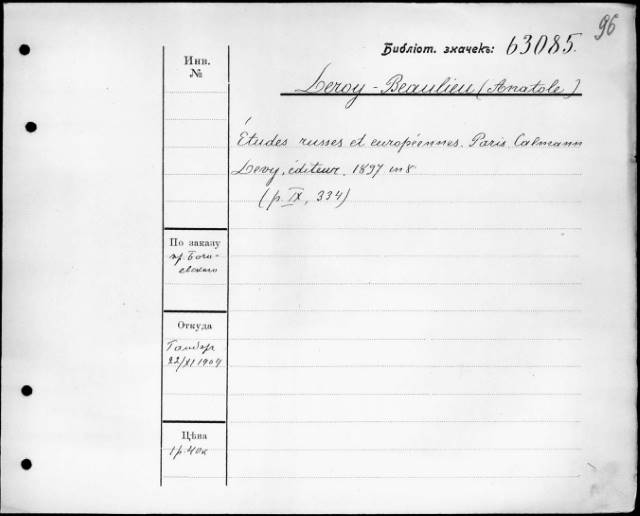 96
Библіот. значекъ: 63085.
Инв.
№
Leroy-Beaulieu (Anatole)
Études russes et européennes. Paris. Calmann
Levy, éditeur. 1897 in 8
(p. IX, 334)
По заказу
пр. Боги-
евскаго
Откуда
22/XI 1904
Цѣна
1 р. 40 к